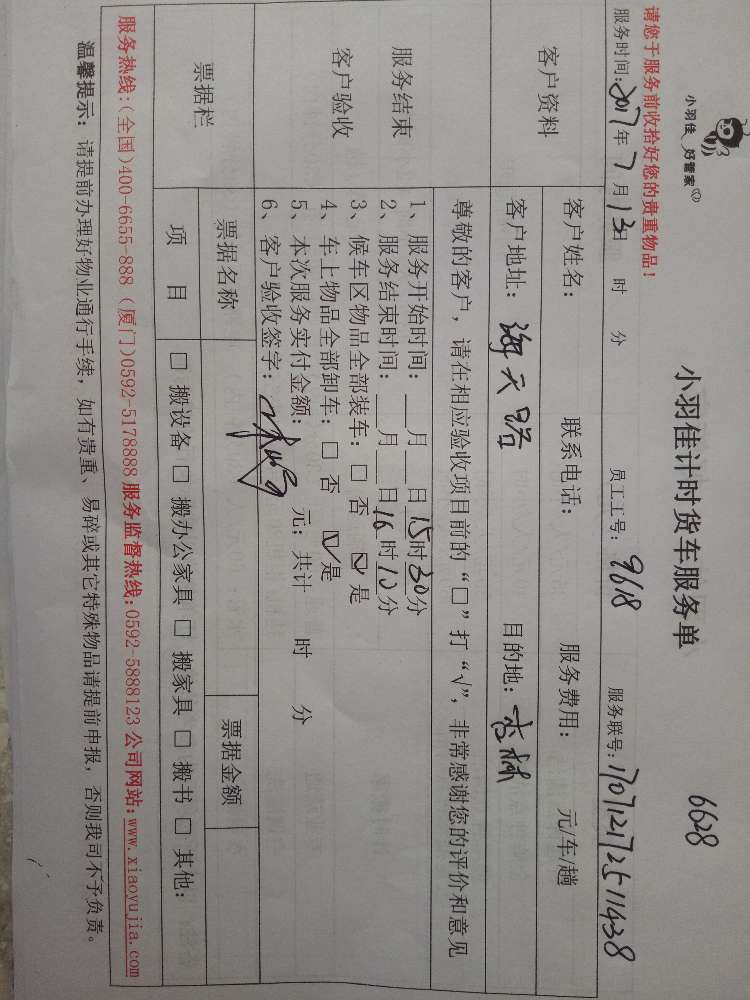 小羽佳 好管家
小羽佳计时货车服务单
6628
请您于服务前收拾好您的贵重物品！
服务时间:2017年7月13日 时 分 员工工号: 9618 服务联号:170712172511438
客户资料
客户姓名: 联系电话: 服务费用: 元/车/趟
客户地址: 海天路 目的地:
服务结束
客户验收
尊敬的客户，请在相应验收项目前的“□”打“√”，非常感谢您的评价和意见
1、服务开始时间: 月 日15时30分
2、服务结束时间: 月 日16时10分
3、候车区物品全部装车: □ 否 ☑ 是
4、车上物品全部卸车: □ 否 ☑ 是
5、本次服务实付金额: 元; 共计 时 分
6、客户验收签字:
票据栏
票据名称 票据金额
项 目 □ 搬设备 □ 搬办公家具 □ 搬家具 □ 搬书 □ 其他:
服务热线:(全国)400-6655-888 (厦门)0592-5178888 服务监督热线:0592-5888123 公司网站:www.xiaoyujia.com
温馨提示: 请提前办理好物业通行手续，如有贵重、易碎或其它特殊物品请提前申报，否则我司不予负责。